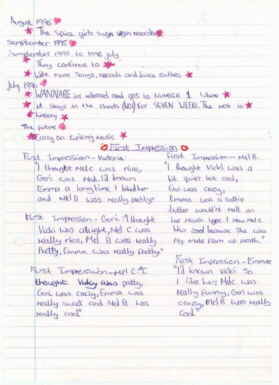 August 1995
The Spice girls sign with records
September 1995
September 1995 to 1996 July
They continue to
Write more songs, records and have outlies
July 1996
WANNABE is released and gos to number 1 where
it stays in the charts (No1) for SEVEN WEEKS. The rest is
history
The future
Carry on making music
First Impression
First Impression - Victoria
"I thought Mel C was nice,
Geri was Mad, I'd known
Emma a long time I told her
and Mel B was really pretty"
First Impression - Mel B.
"I thought Vicki was a
bit quiet but cool,
Geri was crazy,
Emma was a
butter wouldn't melt in
her mouth type & now Mel
C was cool because she was
my mate from up north."
First Impression - Geri "I thought
Vicki was alright, Mel C was
really nice, Mel B was really
Pretty, Emma was really chatty"
First Impression - Mel C "I
thought Vicky was pretty,
Geri was crazy, Emma was
really sweet and Mel B was
really cool"
First Impression - Emma
"I'd known Vicki so
I like her, Mel C was
Really funny, Geri was
crazy, Mel B was really
Cool"